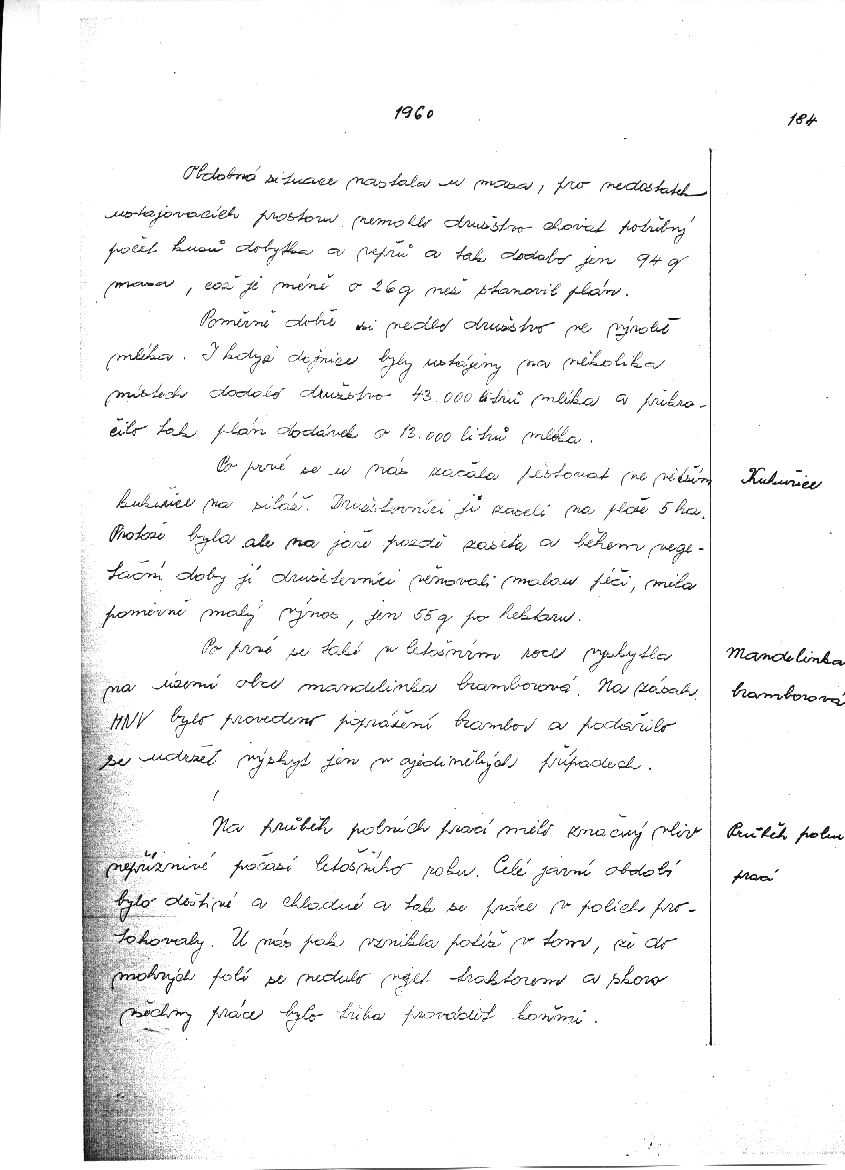 1960
184
Obdobná situace nastala u masa, pro nedostatek
ustajovacích prostorů nemohlo družstvo chovat potřebný
počet kusů dobytka a vepřů a tak dodalo jen 94 q
masa, což je méně o 26 q než stanovil plán.
Poměrně dobře si vedlo družstvo ve výrobě
mléka. I když dojnice byly ustájeny na několika
místech dodalo družstvo 43.000 litrů mléka a překro-
čilo tak plán dodávek o 13.000 litrů mléka.
Po prvé se u nás začala pěstovat ve větším
Kukuřice
kukuřice na siláž. Družstevníci ji zaseli na ploše 5 ha.
Protože byla ale na jaře pozdě zaseta a během vege-
tační doby jí družstevníci věnovali malou péči, měla
poměrně malý výnos, jen 55 q po hektaru.
Po prvé se také v letošním roce vyskytla
Mandelinka
na území obce mandelinka bramborová. Na zásah
bramborová
MNV bylo provedeno poprášení brambor a podařilo
se udržet výskyt jen v ojedinělých případech.
Na průběh polních prací mělo značný vliv
Průběh poln
nepříznivé počasí letošního roku. Celé jarní období
prací
bylo deštivé a chladné a tak se práce v polích pro-
tahovaly. U nás pak vznikla potíž v tom, že do
mokrých polí se nedalo vyjet traktorem a skoro
všechny práce bylo třeba provádět koňmi.